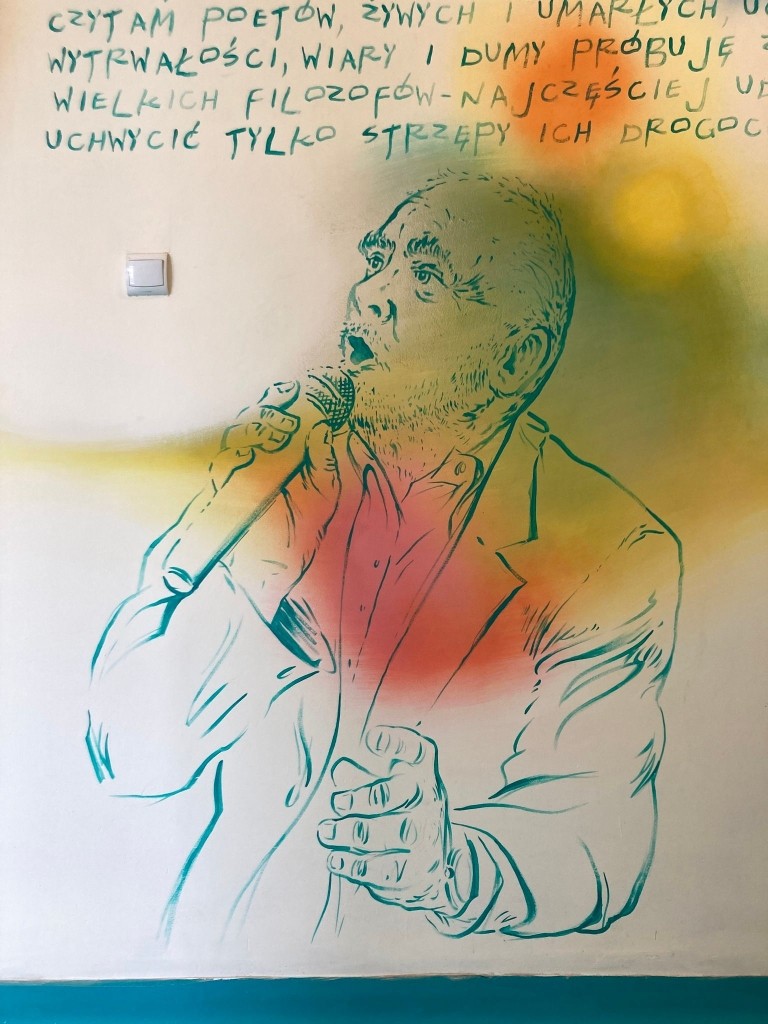 CZYTAM POETÓW, ŻYWYCH I UMARŁYCH,
WYTRWAŁOŚCI, WIARY I DUMY PRÓBUJĘ
WIELKICH FILOZOFÓW-NAJCZĘŚCIEJ
UCHWYCIĆ TYLKO STRZĘPY ICH